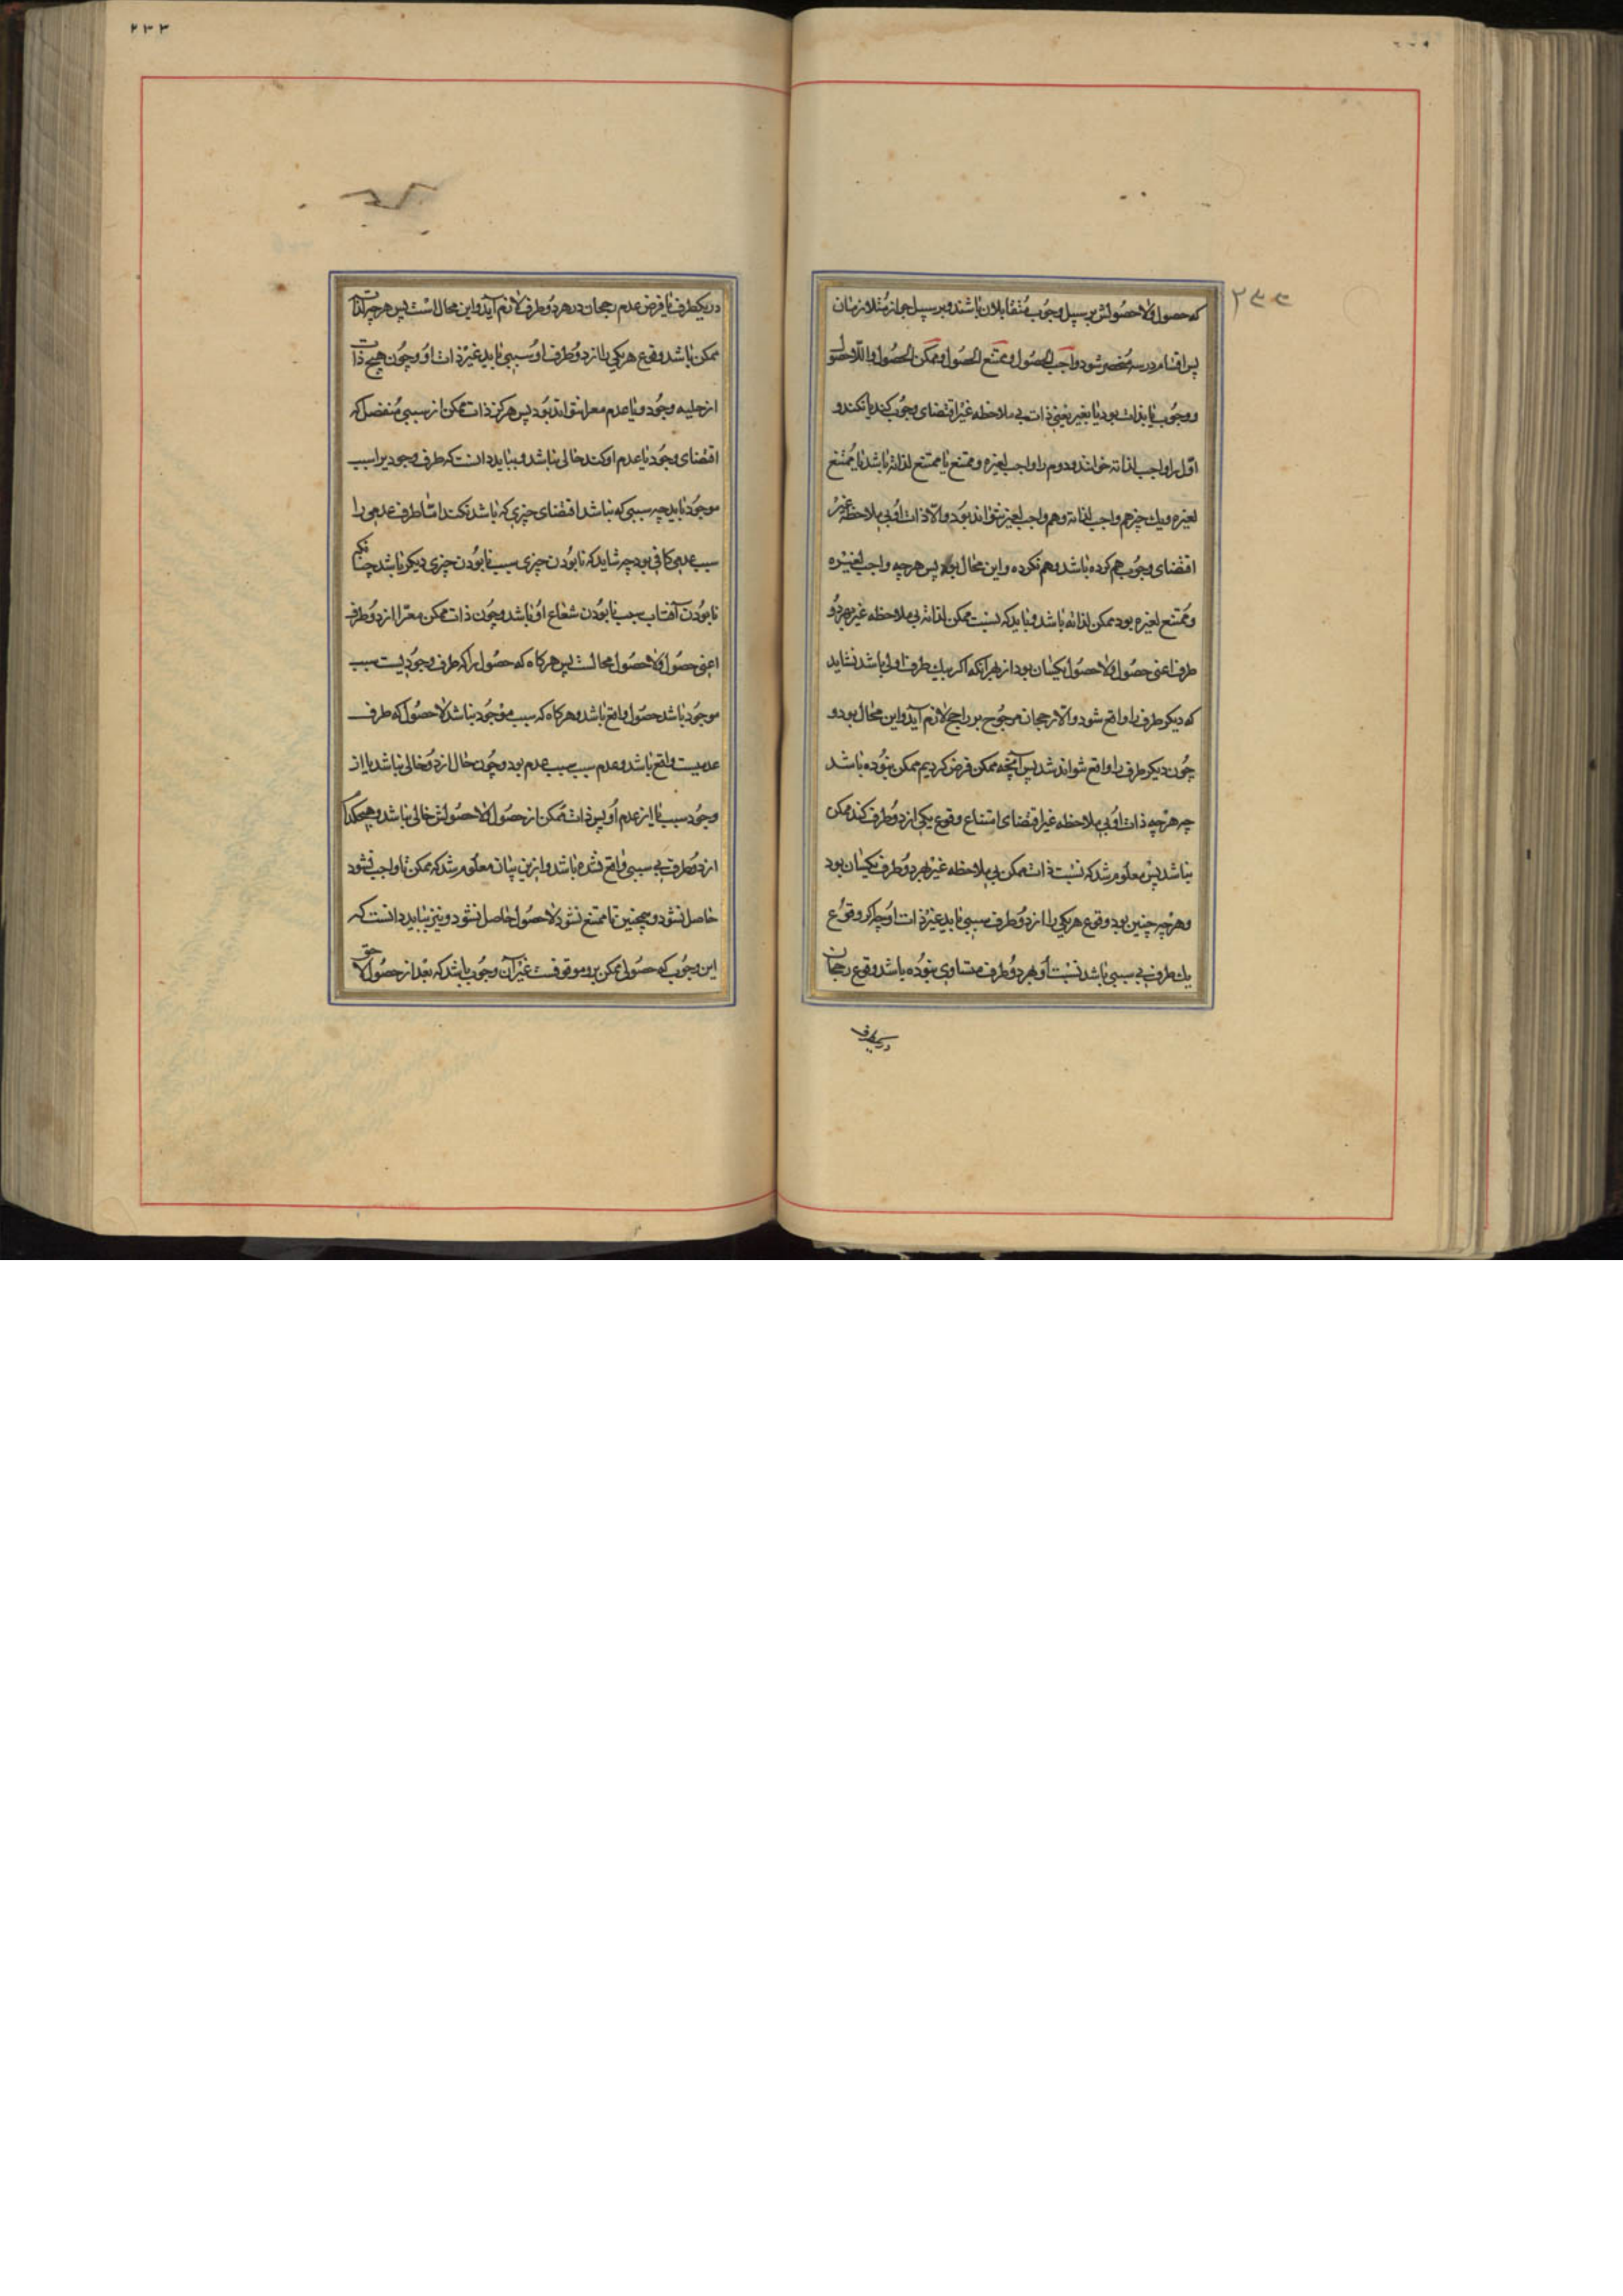 که حصول و لا حصولش بر سبیل وجوب متقابلان باشند و بر سبیل جواز متلازمان
پس اقسام در سه منحصر شود واجب الحصول و ممتنع الحصول و ممکن الحصول و اللاحصول
و وجوب یا بذات بود یا بغیر یعنی ذات بی ملاحظه غیر اقتضای وجوب کند یا نکند و
اول را واجب لذاته خوانند و دوم را واجب لغیره و ممتنع یا ممتنع لذاته باشد یا ممتنع
لغیره و یک چیز هم واجب لذاته و هم واجب لغیره نتواند بود و الا ذات او بی ملاحظه غیر
اقتضای وجوب هم کرده باشد و هم نکرده و این محال بود پس هرچه واجب لغیره
و ممتنع لغیره بود ممکن لذاته باشد و بباید که نسبت ممکن لذاته بی ملاحظه غیر بهر دو
طرف اعنی حصول و لا حصول یکسان بود از بهر آنکه اگر بیک طرف اولی باشد نشاید
که دیکر طرف را واقع شود و الا رجحان مرجوح بر راجح لازم آید و این محال بود و
چون دیکر طرف را واقع نتواند شد پس آنچه ممکن فرض کردیم ممکن نبوده باشد
چه هرچه ذات او بی ملاحظه غیر اقتضای امتناع وقوع یکی از دو طرف کند ممکن
نباشد پس معلوم شد که نسبت ذات ممکن بی ملاحظه غیر بهر دو طرف یکسان بود
و هرچه چنین بود وقوع هر یکی را از دو طرف سببی باید غیر ذات او چه اکر وقوع
یک طرف بی سببی باشد نسبت او بهر دو طرف متساوی نبوده باشد و قوع رجحان
در یکطرف
در یکطرف با فرض عدم رجحان در هر دو طرف لازم آید و این محال است پس هرچه لذات
ممکن باشد وقوع هر یکی را از دو طرف او سببی باید غیر ذات او و چون هیچ ذات
از حلیه وجود و یا عدم معرا نتواند بود پس هرکز ذات ممکن از سببی منفصل که
اقتضای وجود یا عدم او کند خالی نباشد و بباید دانست که طرف وجود یرا سبب
موجود باید چه سببی که نباشد اقتضای چیزی که باشد نکند اما طرف عدمی را
سبب عدمی کافی بود چه شاید که نابودن چیزی سبب نابودن چیزی دیکر باشد چنانکه
نابودن آفتاب سبب نابودن شعاع او باشد و چون ذات ممکن معرا از دو طرف
اعنی حصول و لا حصول محالست پس هرکاه که حصول را که طرف وجودیست سبب
موجود باشد حصول واقع باشد و هرکاه که سبب موجود نباشد لا حصول که طرف
عدمیست واقع باشد و عدم سبب سبب عدم بود و چون حال از دو خالی نباشد یا از
وجود سبب یا از عدم او پس ذات ممکن از حصول و لا حصولش خالی نباشد و هیچکدام
از دو طرف بی سببی واقع نشده باشد و ازین بیان معلوم شد که ممکن تا واجب نشود
حاصل نشود و همچنین تا ممتنع نشود لا حصول حاصل نشود و نیز بباید دانست که
این وجوب که حصول ممکن برو موقوفست غیر آن وجوب باشد که بعد از حصول لاحق